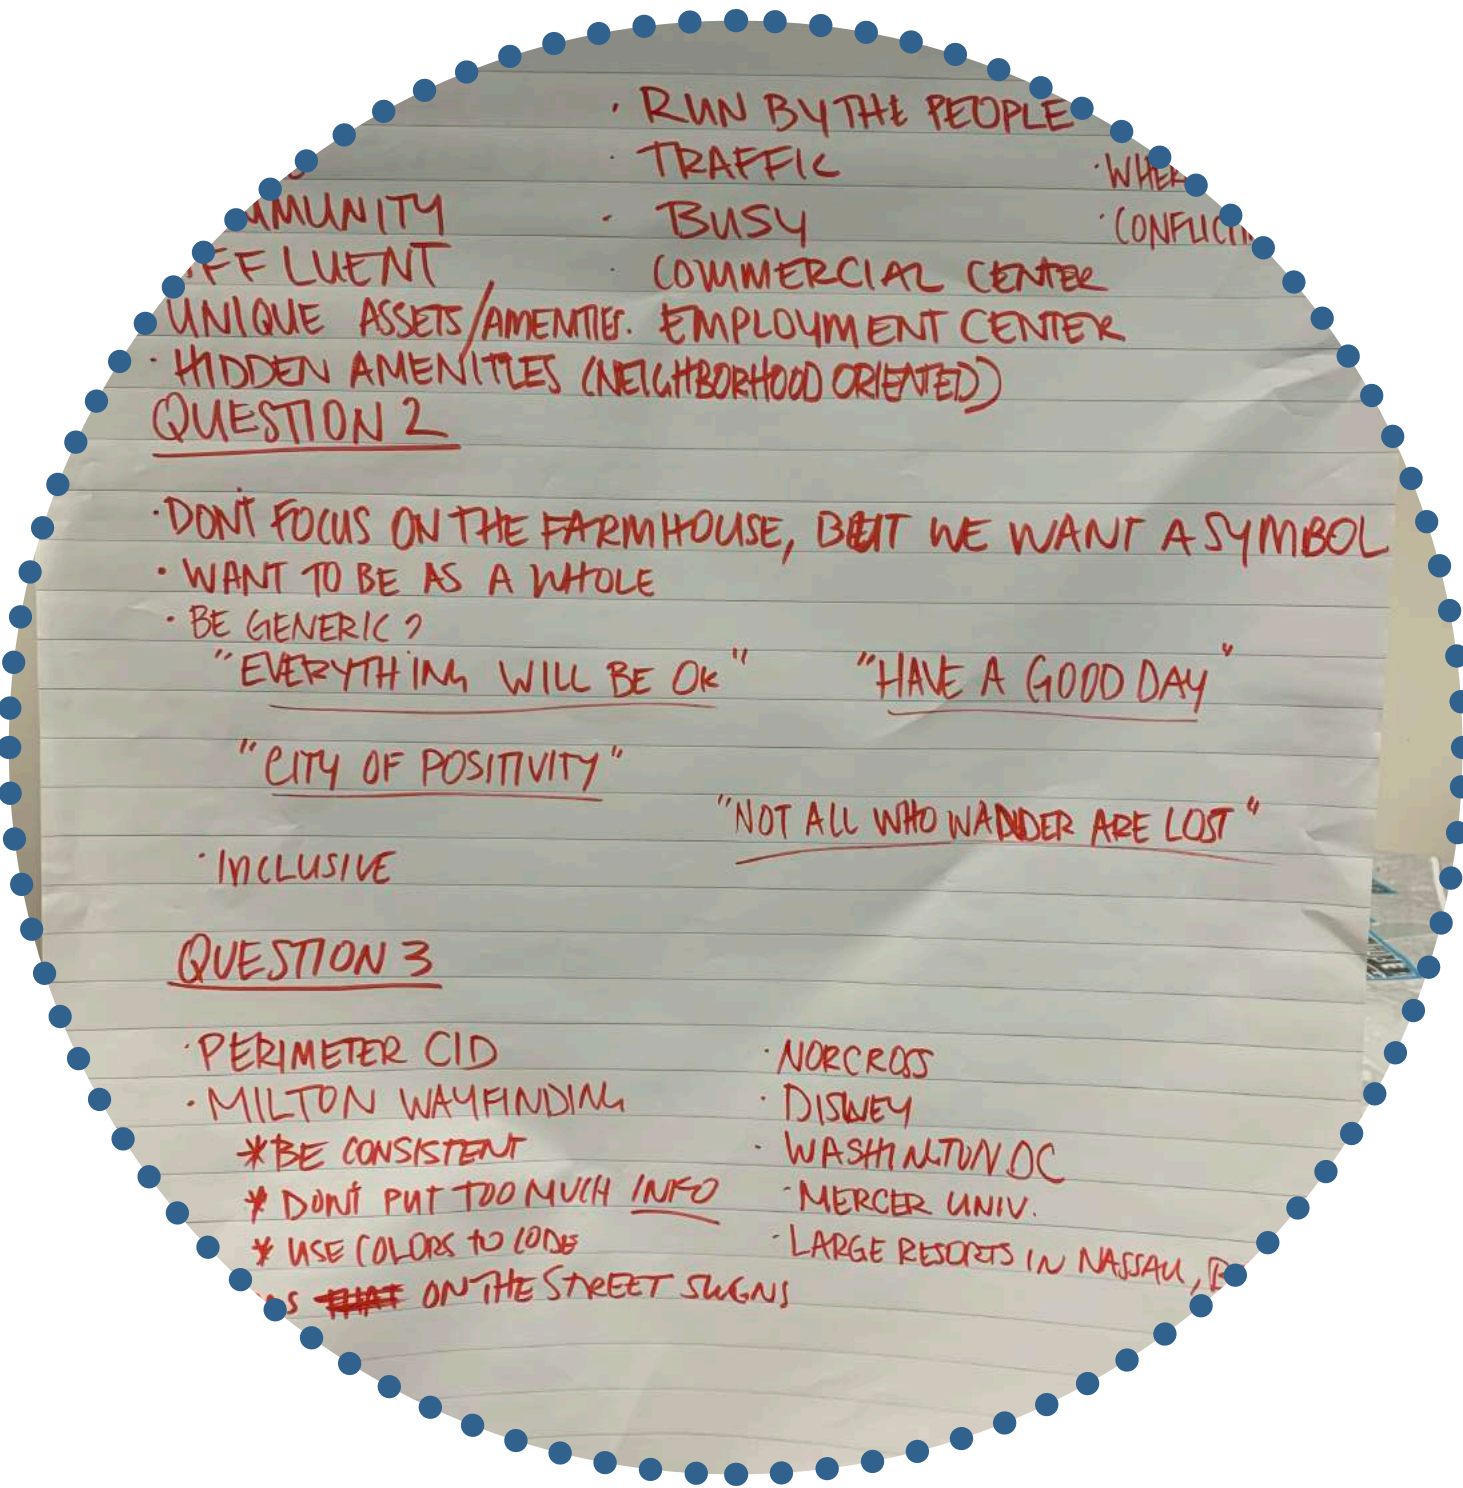 · RUN BY THE PEOPLE
· TRAFFIC
· WHER
MMUNITY
· BUSY
· CONFLICTI
FFLUENT
· COMMERCIAL CENTER
UNIQUE ASSETS/AMENITIES. EMPLOYMENT CENTER
· HIDDEN AMENITIES (NEIGHBORHOOD ORIENTED)
QUESTION 2
· DON'T FOCUS ON THE FARMHOUSE, BUT WE WANT A SYMBOL
· WANT TO BE AS A WHOLE
· BE GENERIC?
"EVERYTHING WILL BE OK" "HAVE A GOOD DAY"
"CITY OF POSITIVITY"
"NOT ALL WHO WANDER ARE LOST"
· INCLUSIVE
QUESTION 3
· PERIMETER CID
· MILTON WAYFINDING
* BE CONSISTENT
* DON'T PUT TOO MUCH INFO
* USE COLORS TO CODE
THAT ON THE STREET SIGNS
· NORCROSS
· DISNEY
· WASHINGTON DC
· MERCER UNIV.
· LARGE RESORTS IN NASSAU, B